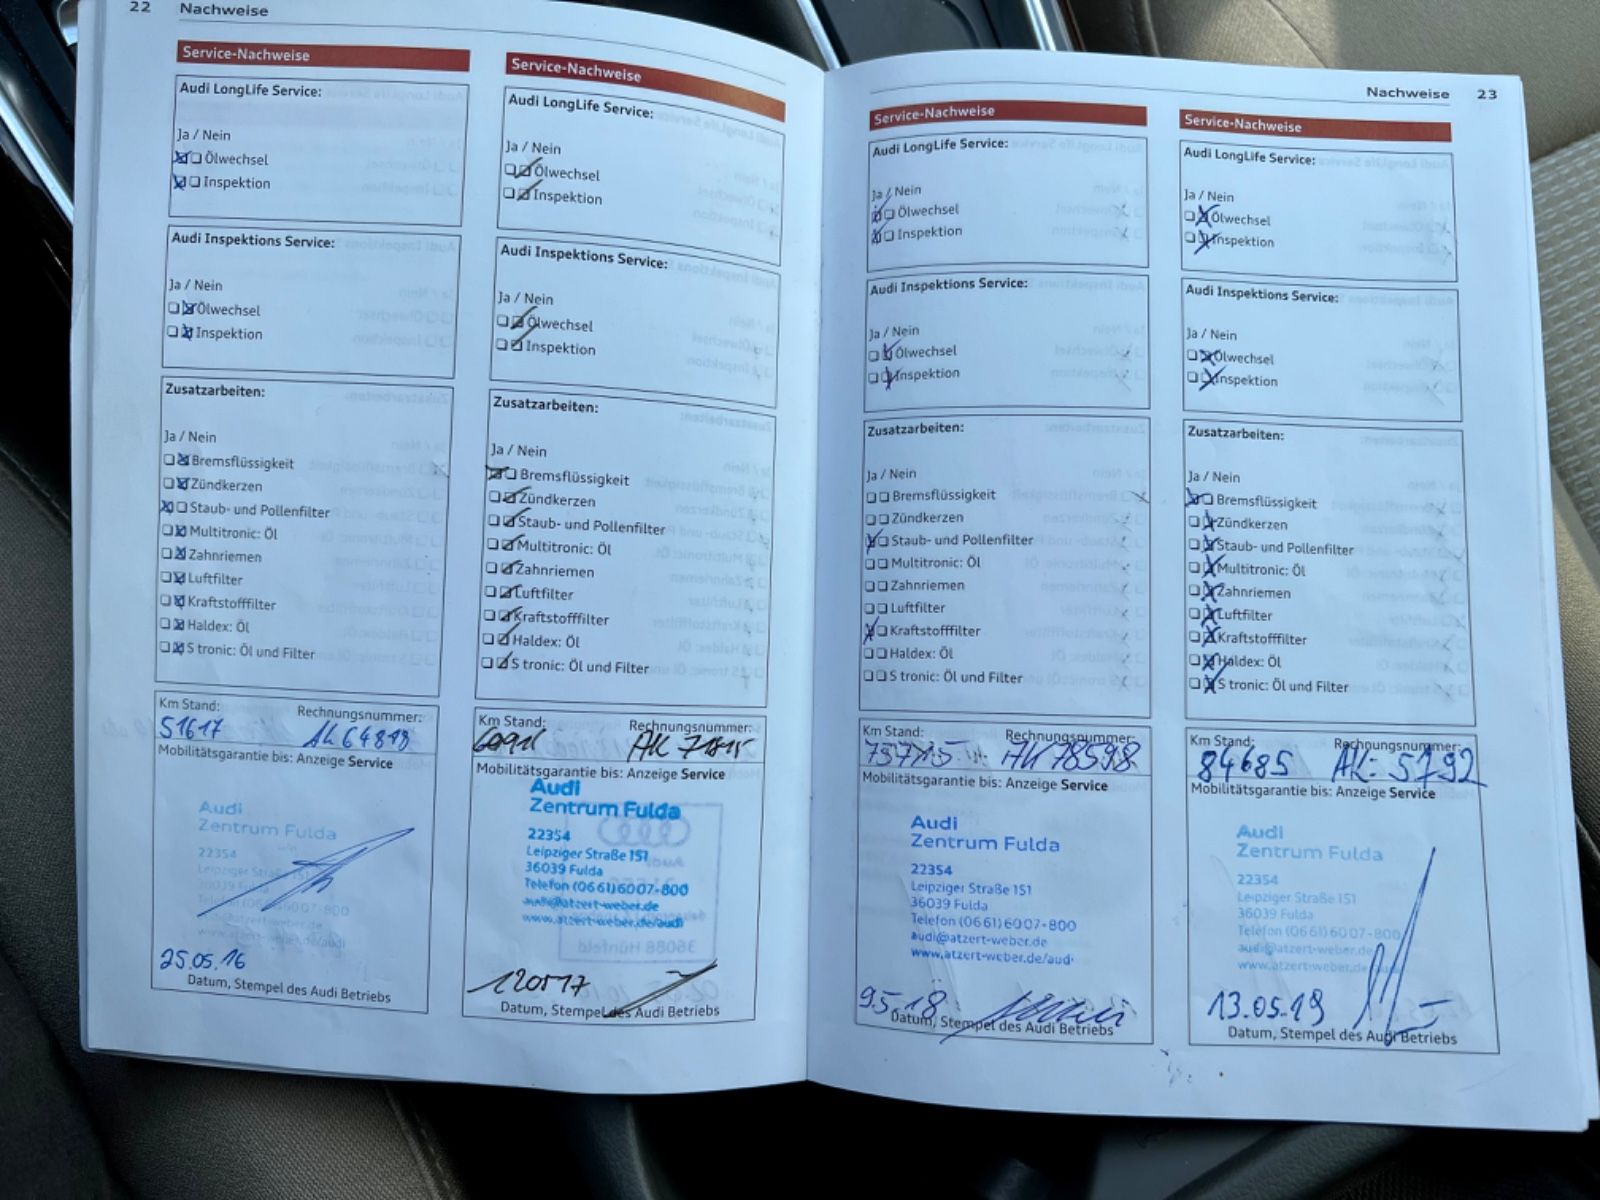 22 Nachweise
Service-Nachweise
Audi LongLife Service:
Ja / Nein
Ölwechsel
Inspektion
Audi Inspektions Service:
Ja / Nein
Ölwechsel
Inspektion
Zusatzarbeiten:
Ja / Nein
Bremsflüssigkeit
Zündkerzen
Staub- und Pollenfilter
Multitronic: Öl
Zahnriemen
Luftfilter
Kraftstofffilter
Haldex: Öl
S tronic: Öl und Filter
Km Stand: Rechnungsnummer:
51617
Mobilitätsgarantie bis: Anzeige Service
Audi
Zentrum Fulda
22354
Leipziger Straße 151
36039 Fulda
Telefon (06 61) 60 07-800
www.atzert-weber.de/audi
25.05.16
Datum, Stempel des Audi Betriebs
Service-Nachweise
Audi LongLife Service:
Ja / Nein
Ölwechsel
Inspektion
Audi Inspektions Service:
Ja / Nein
Ölwechsel
Inspektion
Zusatzarbeiten:
Ja / Nein
Bremsflüssigkeit
Zündkerzen
Staub- und Pollenfilter
Multitronic: Öl
Zahnriemen
Luftfilter
Kraftstofffilter
Haldex: Öl
S tronic: Öl und Filter
Km Stand: Rechnungsnummer:
AK 71815
Mobilitätsgarantie bis: Anzeige Service
Audi
Zentrum Fulda
22354
Leipziger Straße 151
36039 Fulda
Telefon (06 61) 60 07-800
audi@atzert-weber.de
www.atzert-weber.de/audi
120517
Datum, Stempel des Audi Betriebs
Nachweise 23
Service-Nachweise
Audi LongLife Service:
Ja / Nein
Ölwechsel
Inspektion
Audi Inspektions Service:
Ja / Nein
Ölwechsel
Inspektion
Zusatzarbeiten:
Ja / Nein
Bremsflüssigkeit
Zündkerzen
Staub- und Pollenfilter
Multitronic: Öl
Zahnriemen
Luftfilter
Kraftstofffilter
Haldex: Öl
S tronic: Öl und Filter
Km Stand: Rechnungsnummer:
AK78598
Mobilitätsgarantie bis: Anzeige Service
Audi
Zentrum Fulda
22354
Leipziger Straße 151
36039 Fulda
Telefon (06 61) 60 07-800
audi@atzert-weber.de
www.atzert-weber.de/audi
9.5.18
Datum, Stempel des Audi Betriebs
Service-Nachweise
Audi LongLife Service:
Ja / Nein
Ölwechsel
Inspektion
Audi Inspektions Service:
Ja / Nein
Ölwechsel
Inspektion
Zusatzarbeiten:
Ja / Nein
Bremsflüssigkeit
Zündkerzen
Staub- und Pollenfilter
Multitronic: Öl
Zahnriemen
Luftfilter
Kraftstofffilter
Haldex: Öl
S tronic: Öl und Filter
Km Stand: Rechnungsnummer:
84685 AK: 5792
Mobilitätsgarantie bis: Anzeige Service
Audi
Zentrum Fulda
22354
Leipziger Straße 151
36039 Fulda
Telefon (06 61) 60 07-800
audi@atzert-weber.de
www.atzert-weber.de/audi
13.05.19
Datum, Stempel des Audi Betriebs